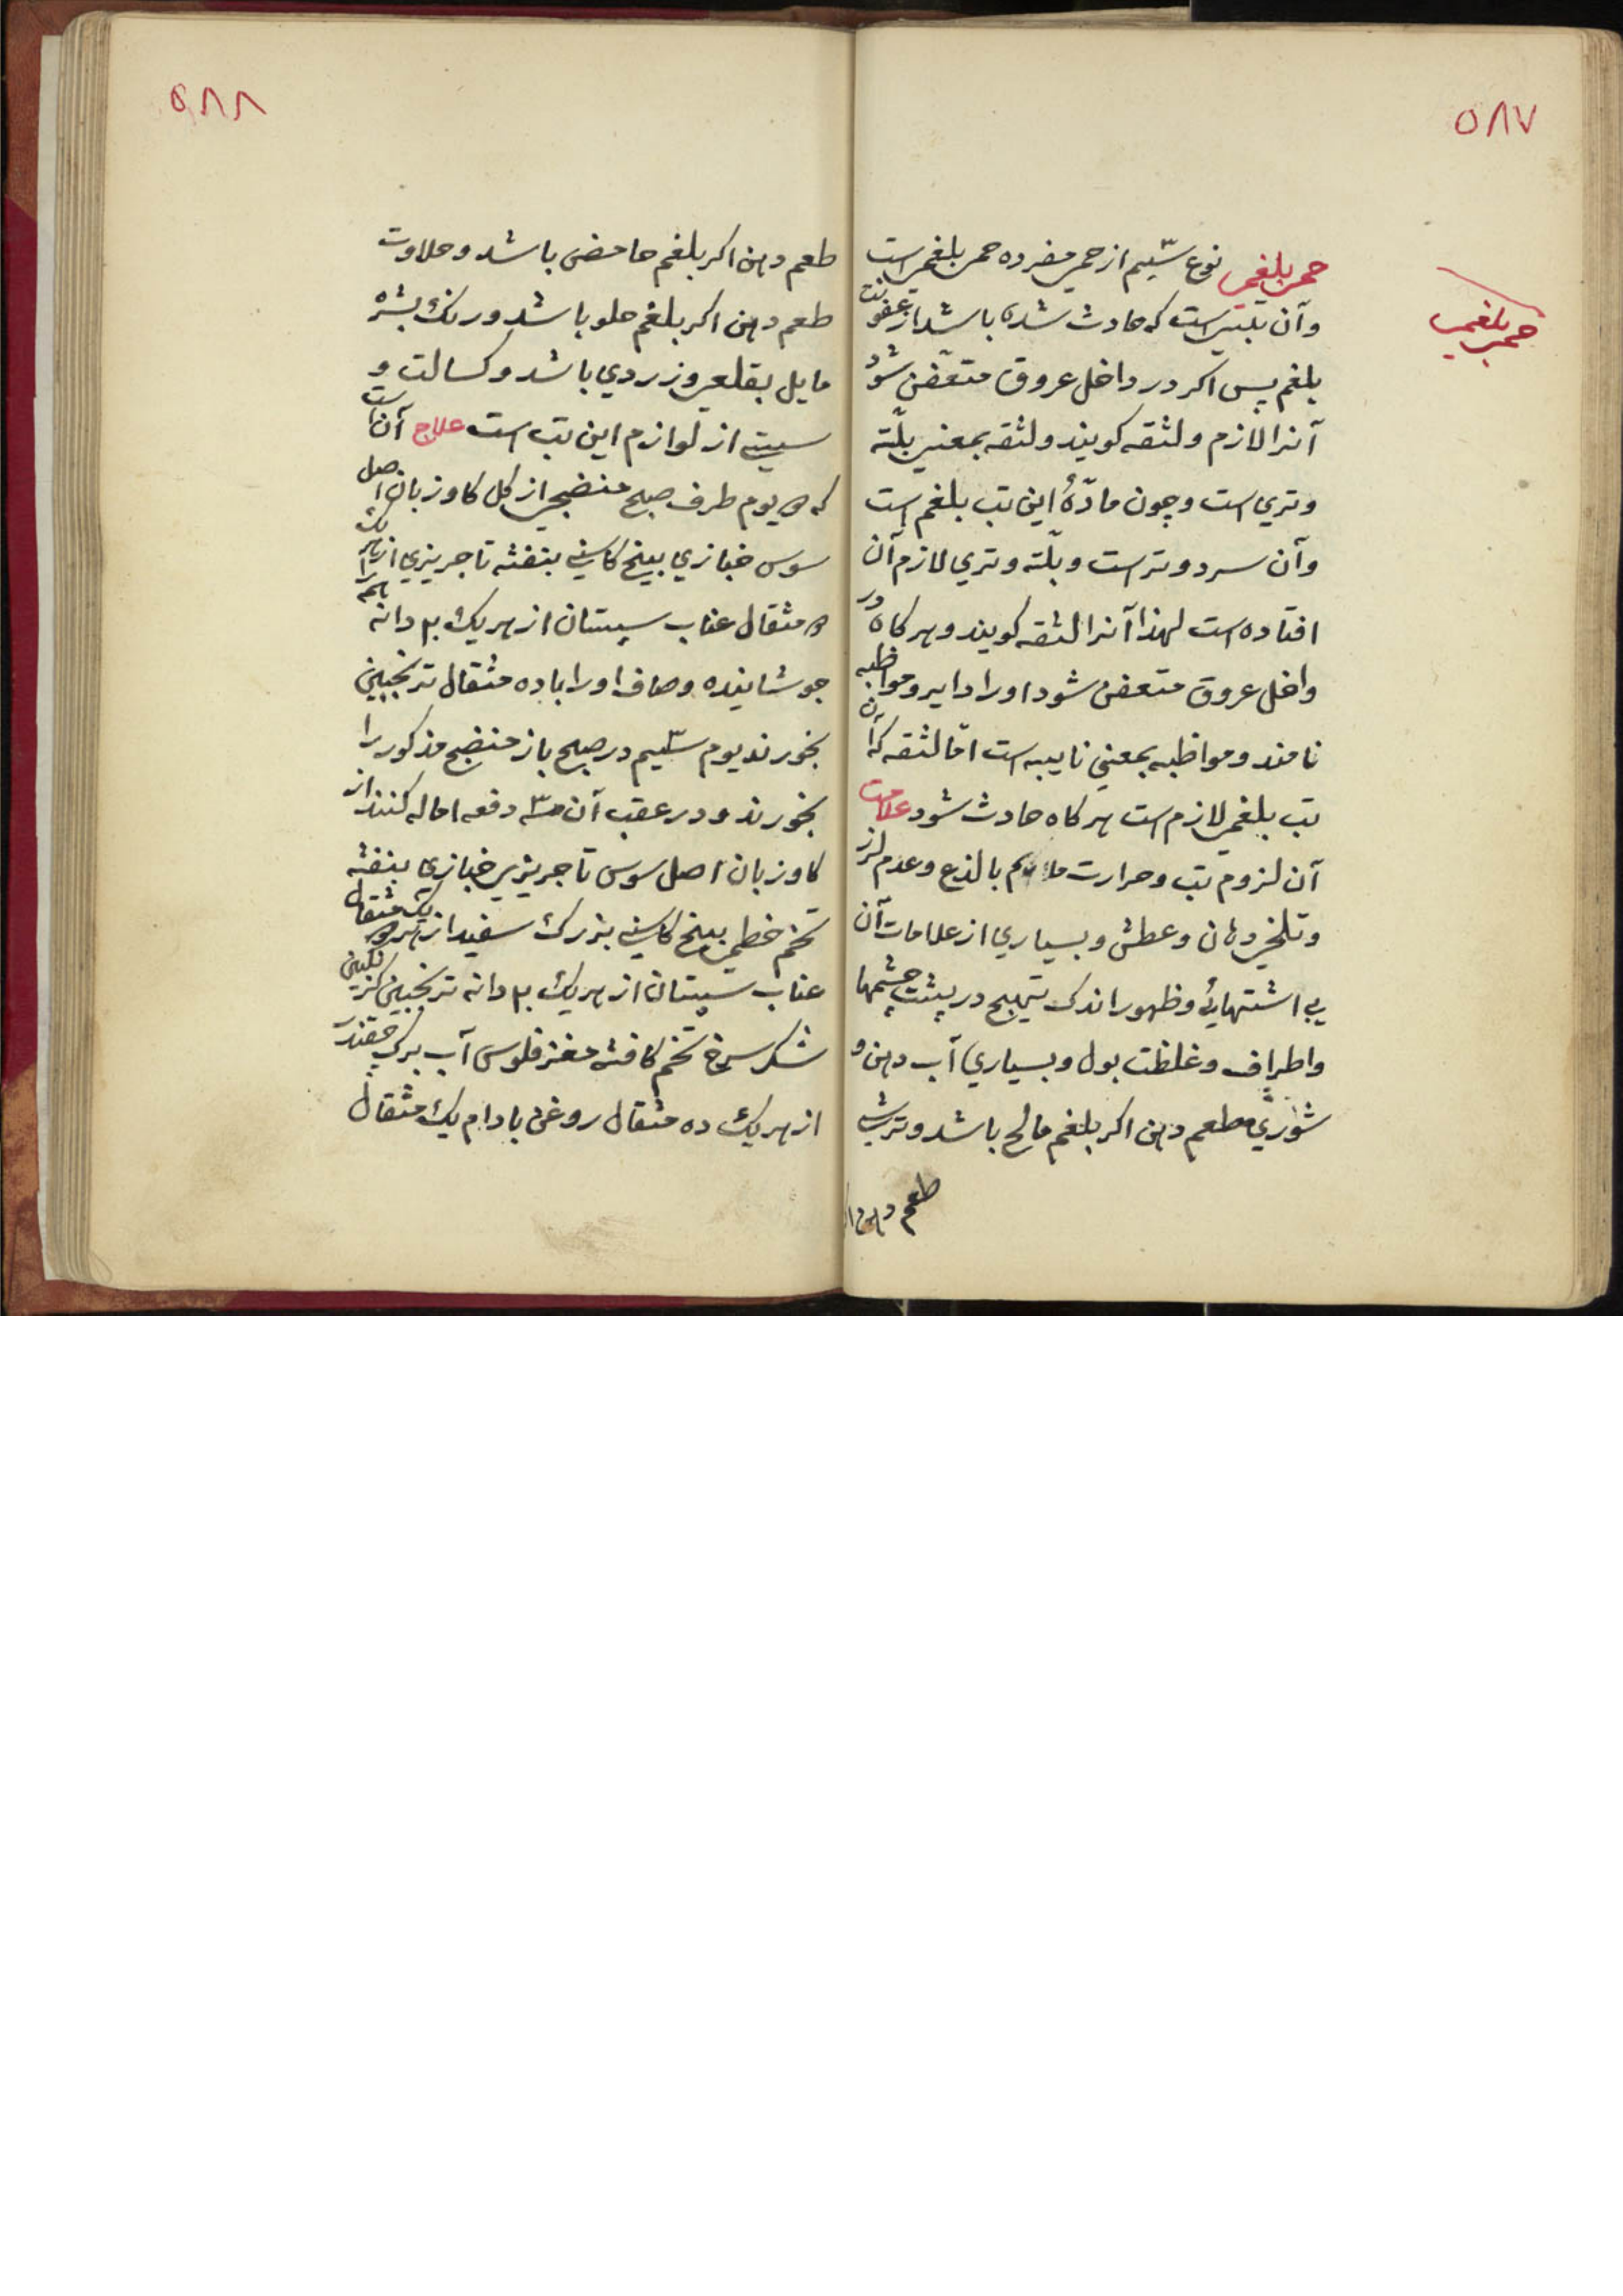 ٥٨٧
حمی بلغمی
حمی بلغمی نوع سیّم از حمی مفرده حمی بلغمی است
وآن تبی است که حادث شده باشد از عفونت
بلغم پس اکر در داخل عروق متعفن شود
آنرا لازم ولثقه کویند ولثقه بمعنی بلّته
وتری است وچون مادّهٔ این تب بلغم است
وآن سرد وتر است وبلّته وتری لازم آن
افتاده است لهذا آنرا لثقه کویند وهرکاه در
داخل عروق متعفن شود اورا دایر ومواظبه
نامند ومواظبه بمعنی نایبه است امّا لثقه که آن
تب بلغمی لازم است هرکاه حادث شود علامت
آن لزوم تب وحرارت ملایم بالذع وعدم لرز
وتلخی دهان وعطش وبسیاری از علامات آن
بی اشتهائی وظهور اندک تهیج در پشت چشمها
واطراف وغلظت بول وبسیاری آب دهن و
شوری طعم دهن اکر بلغم مالح باشد وترشی
طعم دهن ا
٥٨٨
طعم دهن اکر بلغم حامضی باشد وحلاوت
طعم دهن اکر بلغم حلو باشد ورنک بشره
مایل بقلعی وزردی باشد وکسالت و
سستی از لوازم این تب است علاج آن است
که ٥ یوم طرف صبح منضجی از کل کاوزبان اصل
سوس خبازی بیخ کاسنی بنفشه تاجریزی از هر یک
٥ مثقال عناب سپستان از هریک ٢٠ دانه
جوشانیده وصاف اورا با ده مثقال ترنجبین
بخورند یوم سیّم در صبح باز منضج مذکور را
بخورند ودر عقب آن سه دفعه اماله کنند از
کاوزبان اصل سوس تاجریزی خبازی بنفشه
تخم خطمی بیخ کاسنی بزرک سفید از هر یک مثقال
عناب سپستان از هریک ٢٠ دانه ترنجبین
شکر سرخ تخم کافشه مغز فلوس آب برک چقندر
از هریک ده مثقال روغن بادام یک مثقال